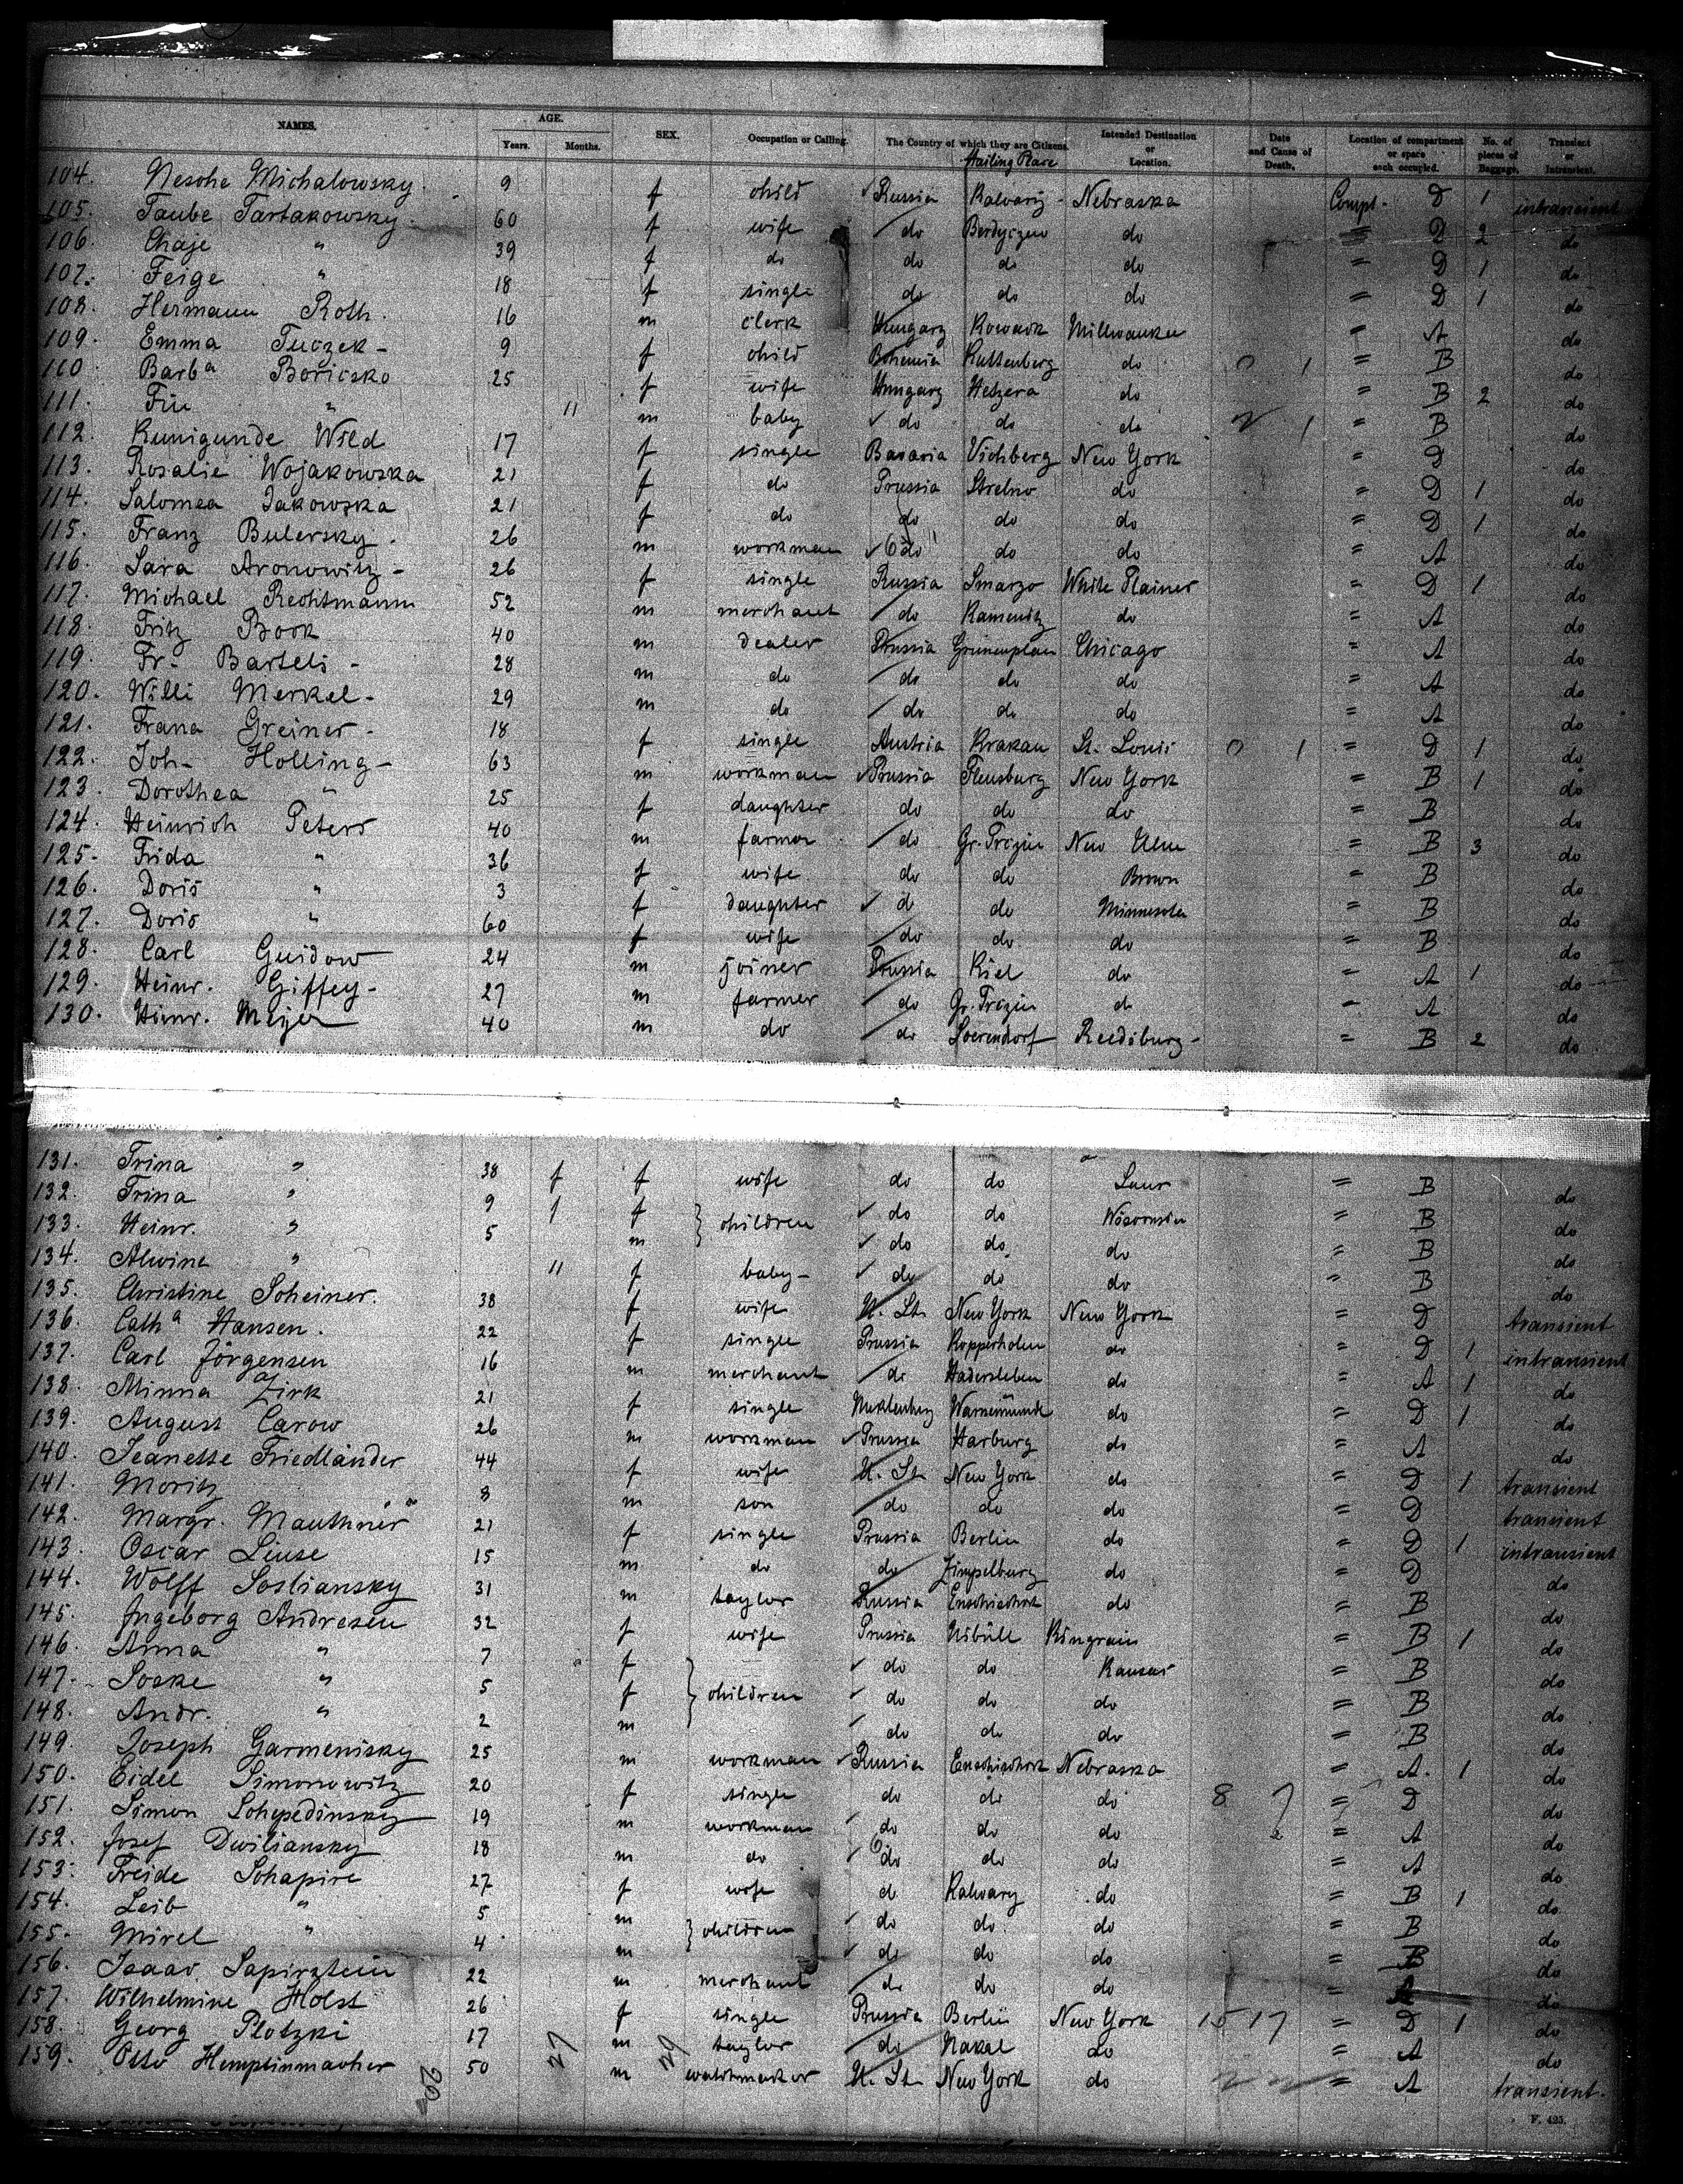 NAMES. AGE. Years. Months. SEX. Occupation or Calling. The Country of which they are Citizens. Hailing Place Intended Destination or Location. Date and Cause of Death. Location of compartment or space each occupied. No. of pieces of Baggage. Transient or Intransient.
104. Nesche Michalowsky. 9 f child Russia Kalvariz - Nebraska Compt. D 1 intransient
105. Taube Tartakowsky. 60 f wife do Berdyczew do = D 2 do
106. Chaje " 39 f do do do do = D 1 do
107. Feige " 18 f single do do do = D 1 do
108. Hermann Roth. 16 m clerk Hungary Millwaukee = A do
109. Emma Tuczek - 9 f child Bohemia Kuttenberg do 0 1 = B do
110. Barba Boricsko 25 f wife Hungary Hetzera do = B 2 do
111. " 11 m baby do do do 1 = B do
112. Kunigunde Wild 17 f single Bavaria Vichberg New York = D do
113. Rosalie Wojakowska 21 f do Prussia Strelno do = D 1 do
114. Salomea Jakowska 21 f do do do do = D 1 do
115. Franz Bulersky. 26 m workman do do do = A do
116. Sara Aronowitz - 26 f single Russia Smargo White Plaines = D 1 do
117. Michael Rechtmann 52 m merchant do Kamenitz do = A do
118. Fritz Bock 40 m dealer Prussia Grünenplan Chicago = A do
119. Fr. Bartels - 28 m do do do do = A do
120. Willi Merkel - 29 m do do do do = A do
121. Frana Greiner - 18 f single Austria Krakau St. Louis 0 1 = D 1 do
122. Joh. Holling - 63 m workman Prussia Flensburg New York = B 1 do
123. Dorothea " 25 f daughter do do do = B do
124. Heinrich Peters 40 m farmer do New Ulm = B 3 do
125. Frida " 36 f wife do do Brown = B do
126. Doris " 3 f daughter do do Minnesota = B do
127. Doris " 60 f wife do do do = B do
128. Carl Guidow 24 m joiner Prussia Kiel do = A 1 do
129. Heinr. Giffey - 27 m farmer do do = A do
130. Heinr. Meyer 40 m do do Soerendorf Reedsburg - = B 2 do
131. Trina " 38 f f wife do do = B do
132. Trina " 9 f children do do Wisconsin = B do
133. Heinr. " 5 m do do do = B do
134. Alwine " 11 f baby - do do do = B do
135. Christine Scheiner. 38 f wife U. St. New York New York = D transient
136. Catha Hansen. 22 f single Prussia Kopperholm do = D 1 intransient
137. Carl Jörgensen 16 m merchant do Hadersleben do = A 1 do
138. Minna Zirk 21 f single Mecklenburg Warnemünde do = D 1 do
139. August Carow 26 m workman Prussia Harburg do = A do
140. Jeanette Friedländer 44 f wife U. St. New York do = D 1 transient
141. Moritz " 8 m son do do do = D transient
142. Margr. Mauthner 21 f single Prussia Berlin do = D 1 intransient
143. Oscar Linse 15 m do do Zimpelburg do = D do
144. Wolff Sosliansky 31 m taylor Russia do = B do
145. Ingeborg Andresen 32 f wife Prussia Nibüll Kingrain = B 1 do
146. Anna " 7 f children do do Kansas = B do
147. Soske " 5 f do do do = B do
148. Andr. " 2 m do do do = B do
149. Joseph Garmenisky 25 m workman Russia Nebraska = A. 1 do
150. Eidel Simonowitz 20 f single do do do 8 = D do
151. Simon Schepedinsky 19 m workman do do do 2 = A do
152. Josef Dwiliansky 18 m do do do do = A do
153. Freide Schapire 27 f wife do Kalvary do = B 1 do
154. Leib " 5 m children do do do = B do
155. Mirel " 4 m do do do = B do
156. Isaac Sapirztein 22 m merchant do do do = do
157. Wilhelmine Holst 26 f single Prussia Berlin New York 15 17 = D 1 do
158. Georg Plotzki 17 m taylor do Nakel do = A do
159. Otto Hemplinmacher 50 m watchmaker U. St. New York do = A transient.
F. 425.